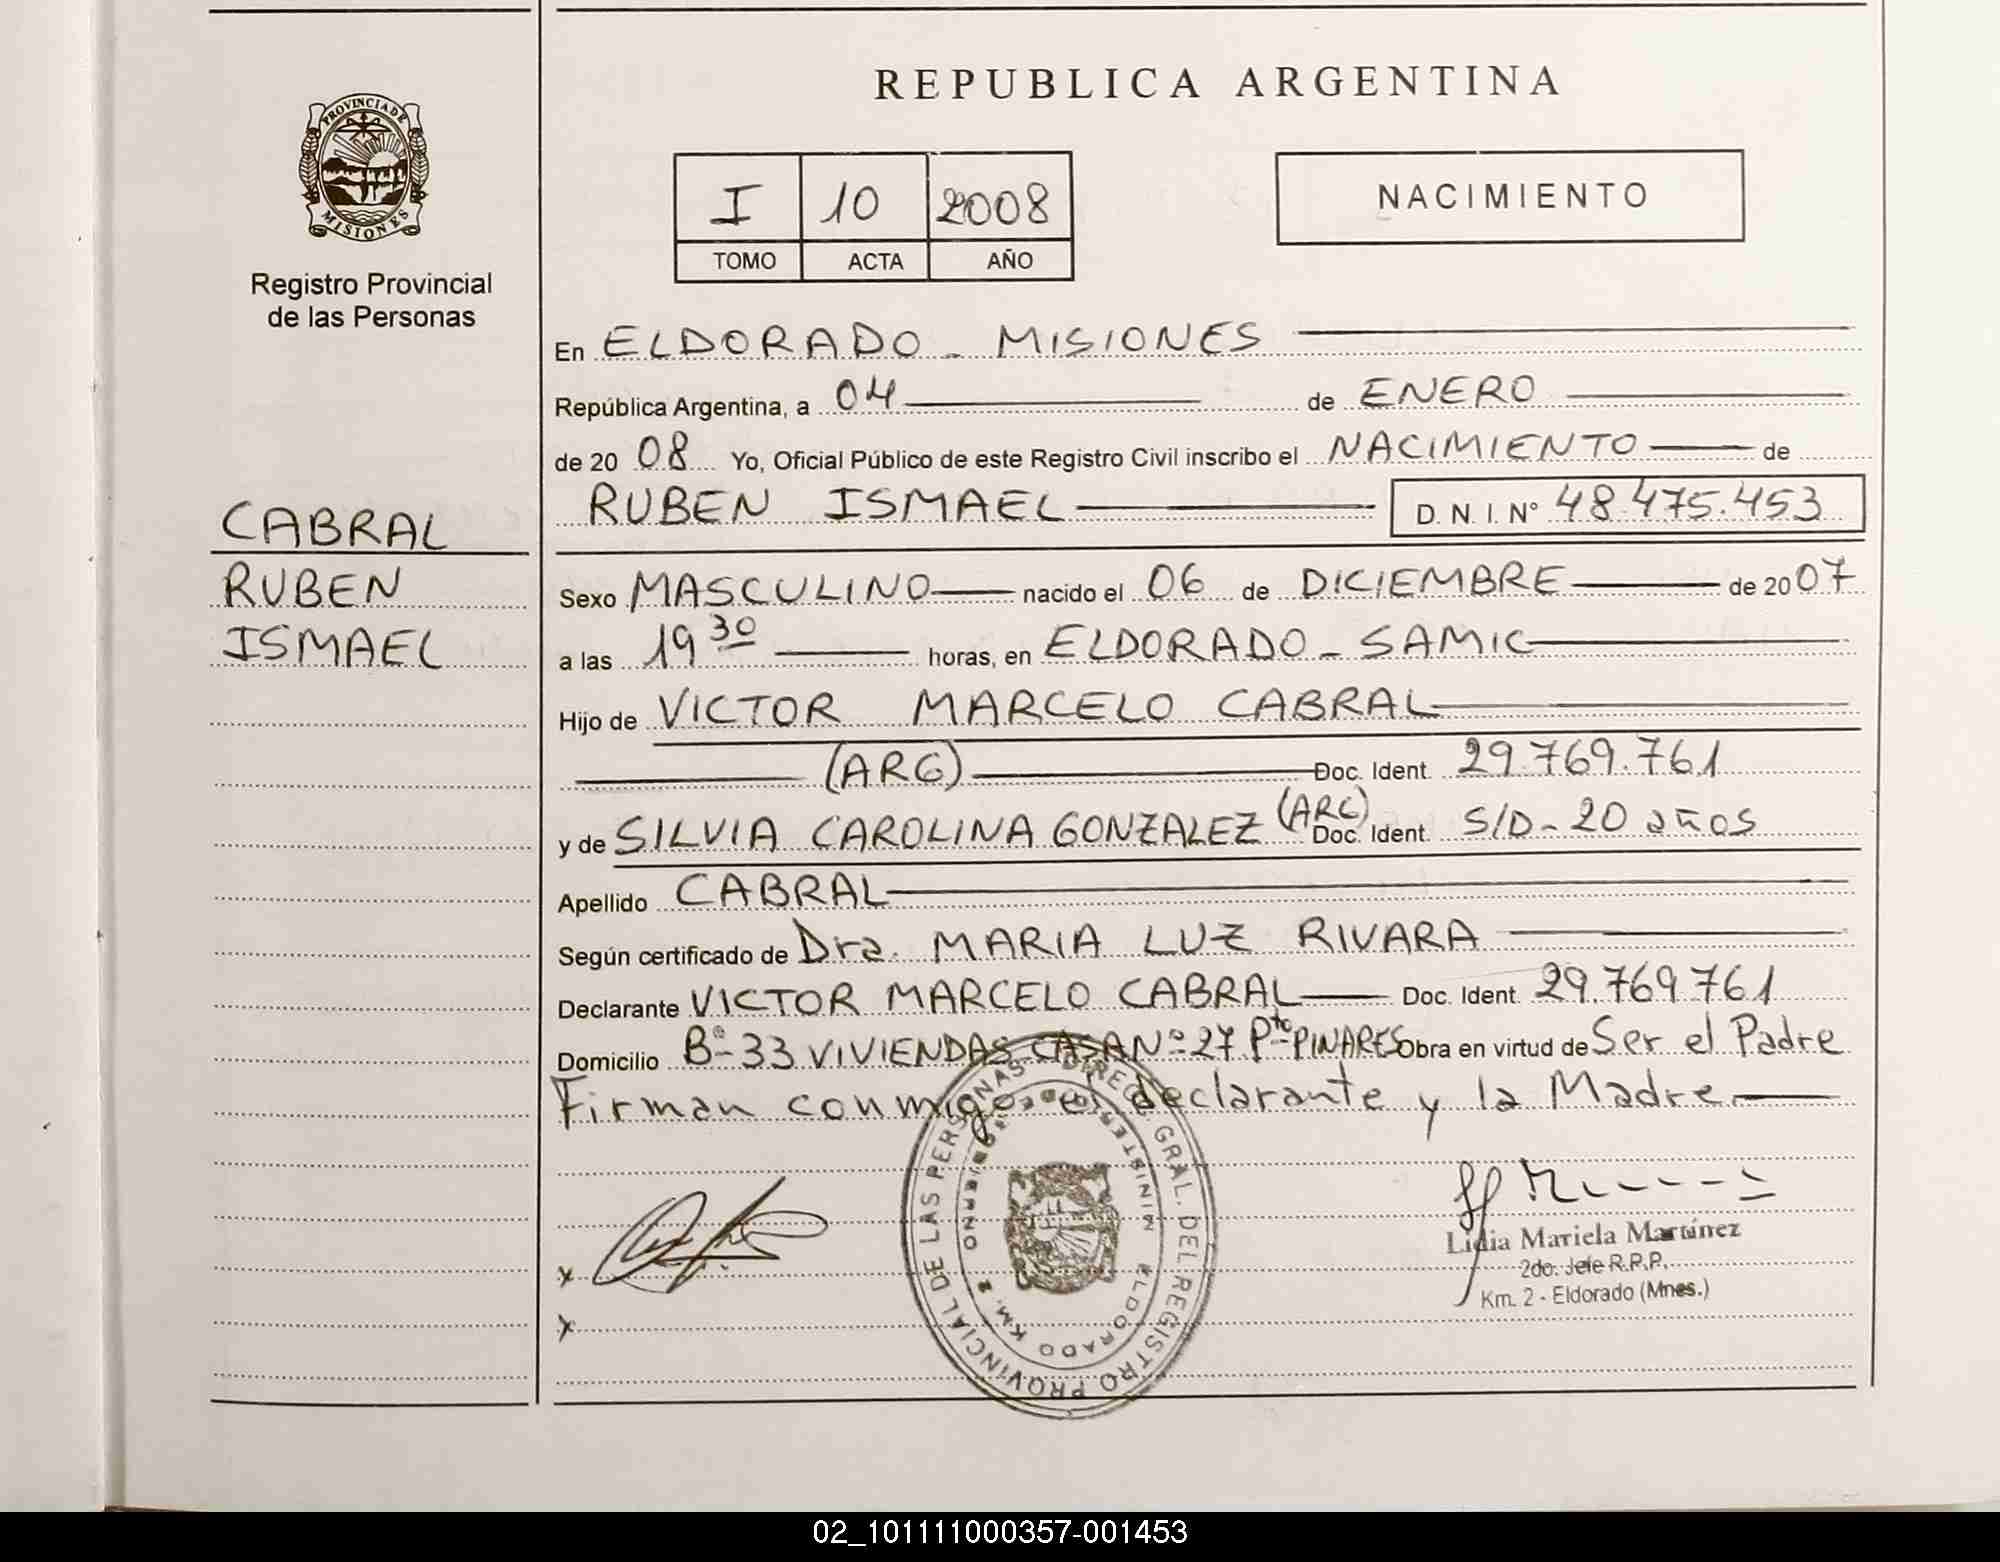 REPUBLICA ARGENTINA
PROVINCIA DE MISIONES
Registro Provincial
de las Personas
I 10 2008
TOMO ACTA AÑO
NACIMIENTO
En ELDORADO - MISIONES
República Argentina, a 04 de ENERO
de 20 08 Yo, Oficial Público de este Registro Civil inscribo el NACIMIENTO de
RUBEN ISMAEL D. N. I. Nº 48.475.453
CABRAL
RUBEN
ISMAEL
Sexo MASCULINO nacido el 06 de DICIEMBRE de 20 07
a las 19 30 horas, en ELDORADO - SAMIC
Hijo de VICTOR MARCELO CABRAL
(ARG) Doc. Ident. 29.769.761
y de SILVIA CAROLINA GONZALEZ (ARG) Doc. Ident. S/D - 20 años
Apellido CABRAL
Según certificado de Dra. MARIA LUZ RIVARA
Declarante VICTOR MARCELO CABRAL Doc. Ident. 29.769761
Domicilio Bº 33 VIVIENDAS CASA Nº 27 Pto PINARES Obra en virtud de Ser el Padre
Firman conmigo el declarante y la Madre
x
x
DIREC. GRAL. DEL REGISTRO PROVINCIAL DE LAS PERSONAS
ELDORADO KM. 2
Lidia Mariela Martínez
2do. Jefe R.P.P.
Km. 2 - Eldorado (Mnes.)
02_101111000357-001453